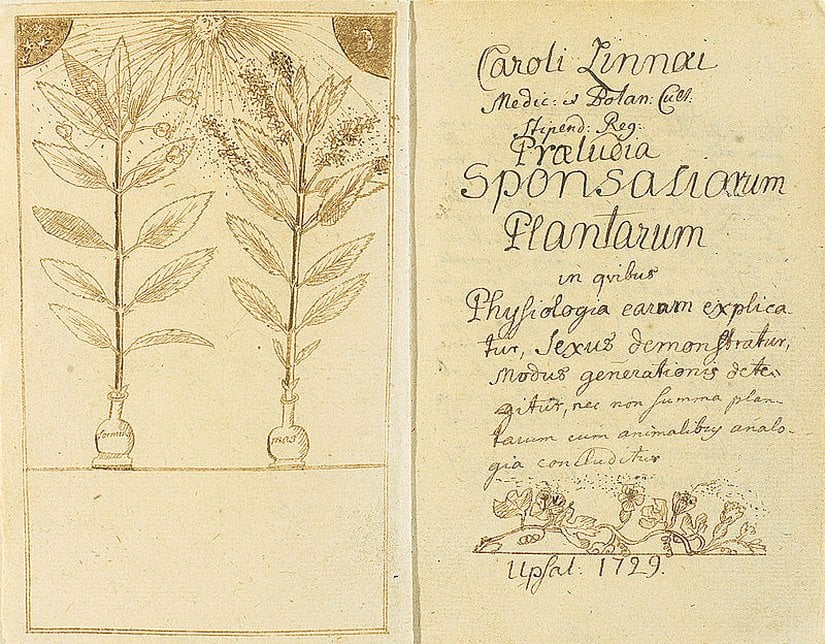 femina
mas
Caroli Linnæi
Medic: et Botan: Cult.
Stipend: Reg:
Præludia
Sponsaliarum
Plantarum
in qvibus
Physiologia earum explica-
tur, Sexus demonstratur,
Modus generationis dete-
gitur, nec non summa plan-
tarum cum animalibus analo-
gia concluditur
Upsal. 1729.